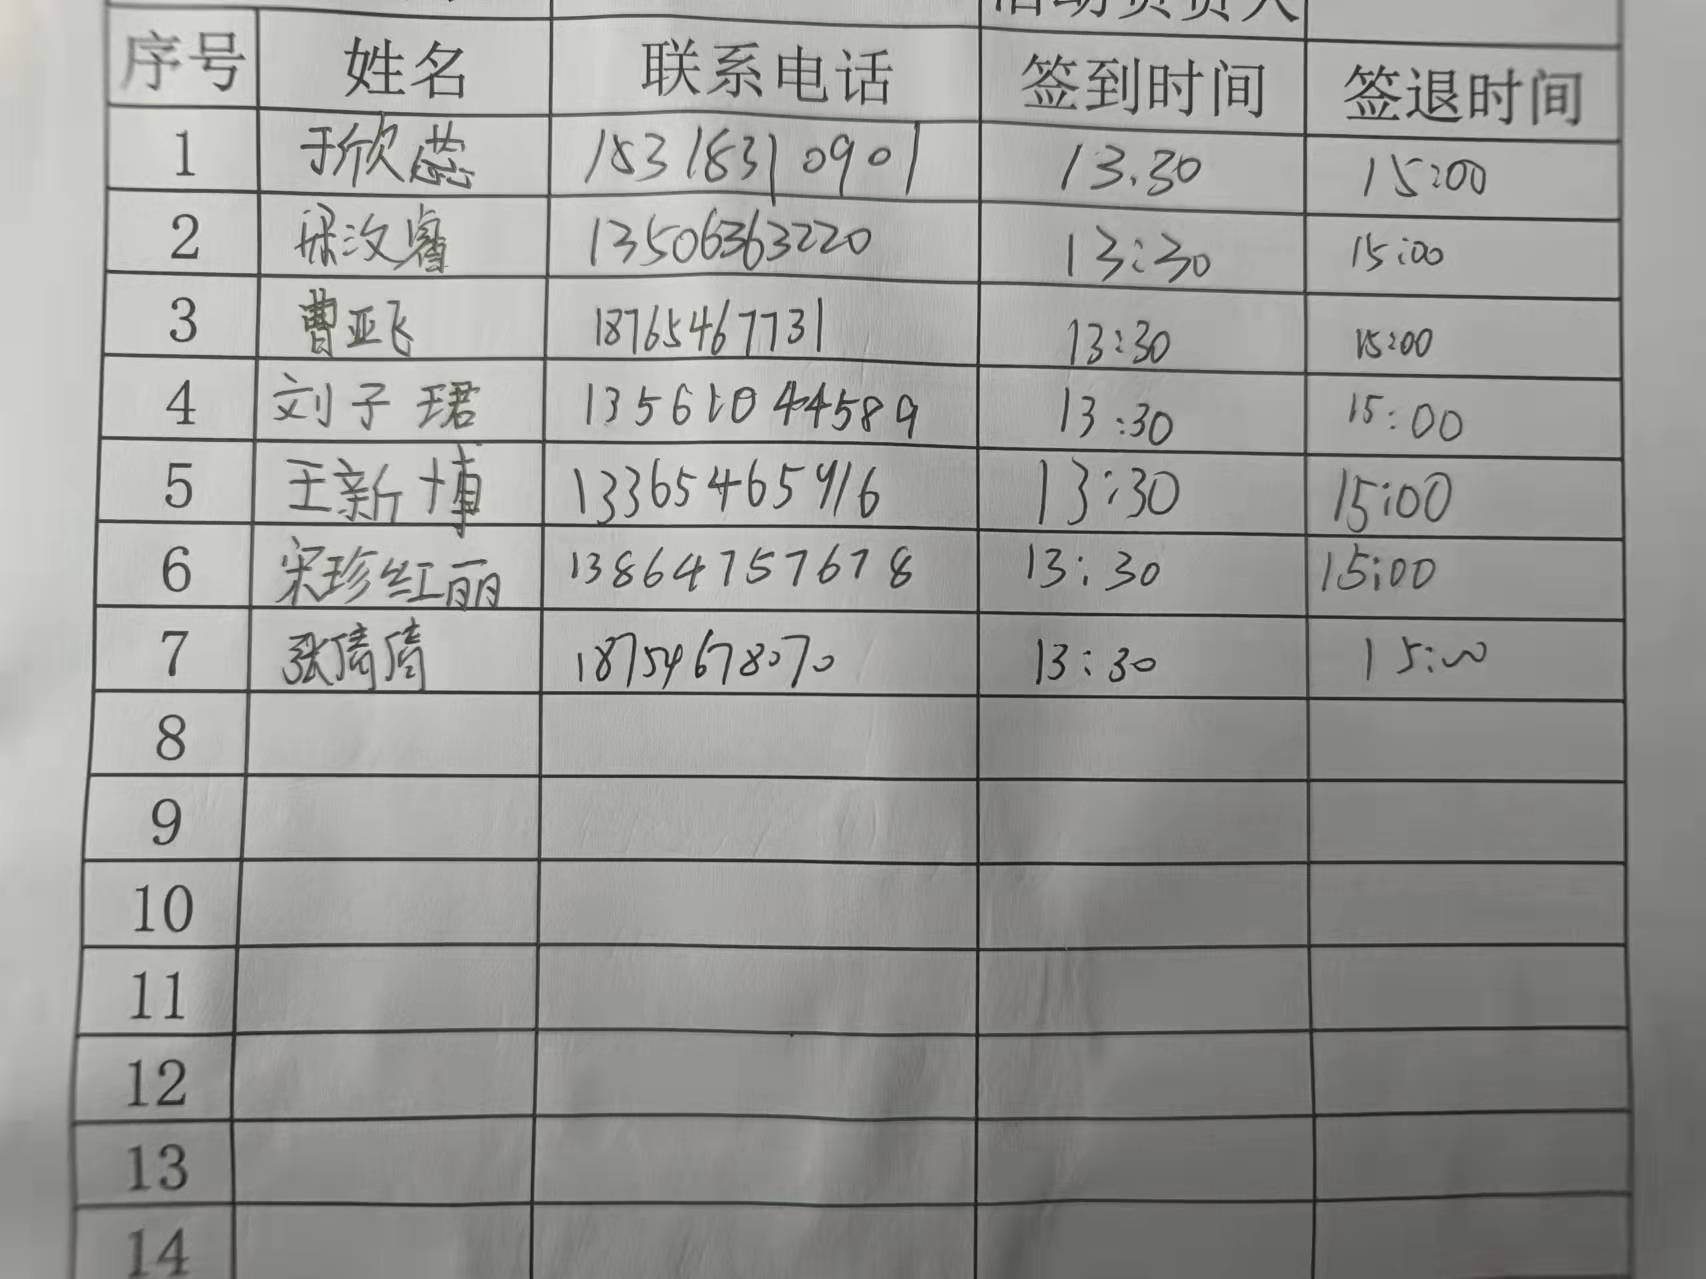 活动负责人
序号 姓名 联系电话 签到时间 签退时间
1 于欣蕊 15318310901 13.30 15:00
2 梁汶睿 13506363220 13:30 15:00
3 曹亚飞 18765467731 13:30 15:00
4 刘子珺 13561044589 13:30 15:00
5 王新博 13365465916 13:30 15:00
6 宋珍红丽 13864757678 13:30 15:00
7 张倩倩 18754678070 13:30 15:00
8
9
10
11
12
13
14